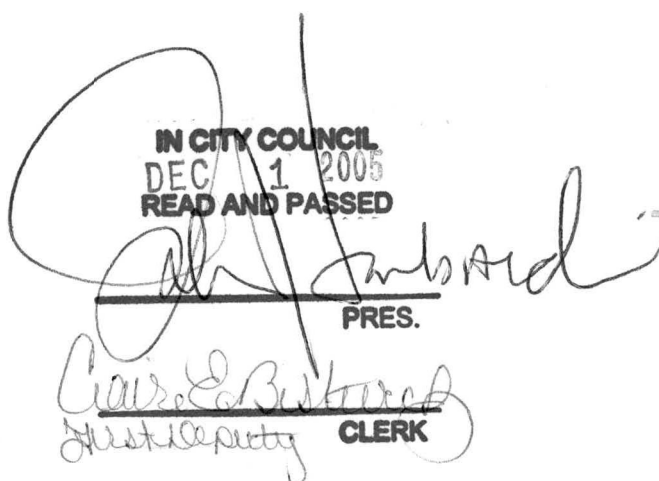 IN CITY COUNCIL
DEC 1 2005
READ AND PASSED
PRES.
Claire E. Bestwick
First Deputy CLERK